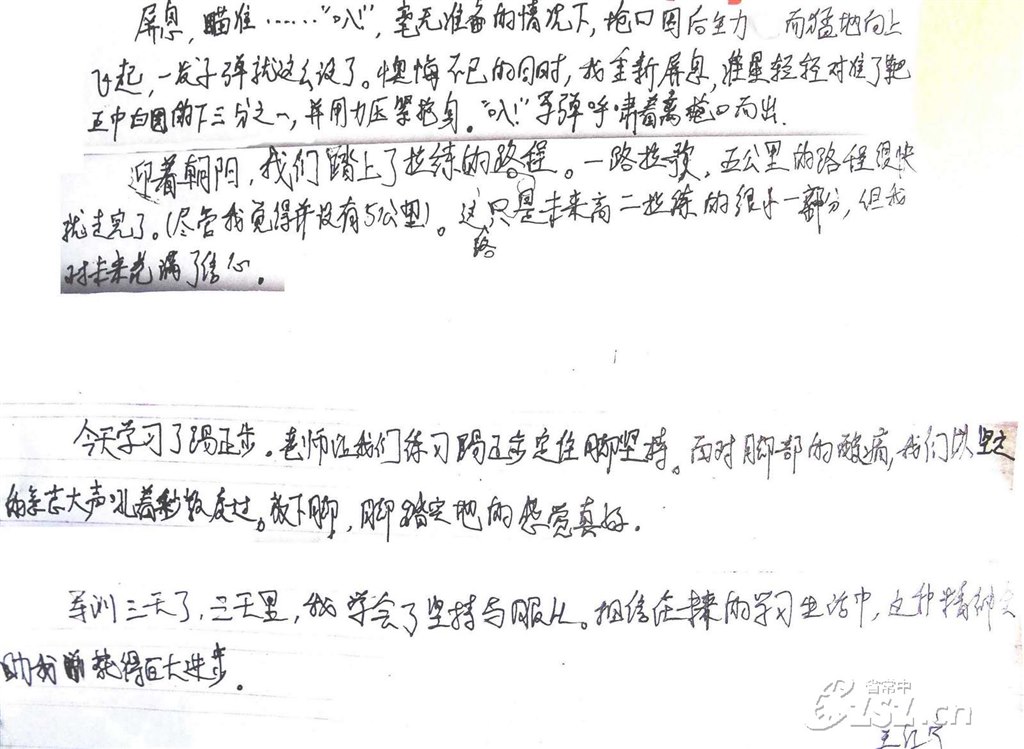 屏息，瞄准……“叭”，毫无准备的情况下，枪口因后坐力 而猛地向上
飞起，一发子弹就这么没了。懊悔不已的同时，我重新屏息，准星轻轻对准了靶
正中白圆的下三分之一，并用力压紧枪身。“叭”子弹呼啸着离枪口而出.
迎着朝阳，我们踏上了拉练的路程。一路拉歌，五公里的路程很快
就走完了。（尽管我觉得并没有5公里）。这只是未来高二拉练的很小一部分，但我
路
对未来充满了信心。
今天学习了踢正步。老师让我们练习踢正步定住脚坚持。面对脚部的酸痛，我们以坚定
的意志大声吼着秒数度过。放下脚，脚踏实地的感觉真好。
军训三天了，三天里，我学会了坚持与服从。相信在未来的学习生活中，这种精神会
助我 获得巨大进步。
省常中
.cn